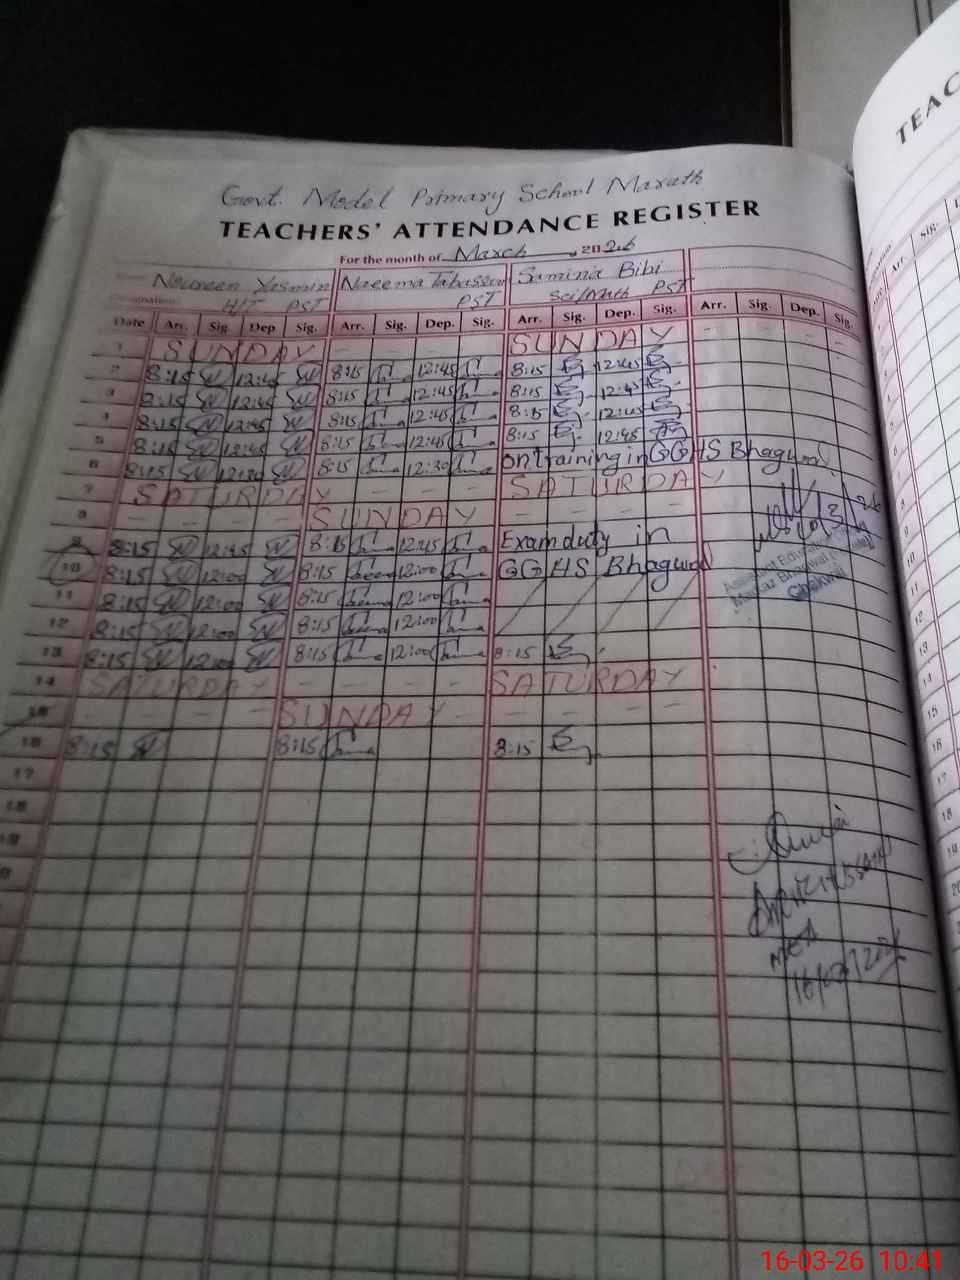 Govt. Model Primary School Marath
TEACHERS' ATTENDANCE REGISTER
For the month of March 2026
Noureen Yasmin Naeema Tabassum Samina Bibi
Designation: H/T PST PST Sci/Math PST
Date Arr. Sig. Dep. Sig. Arr. Sig. Dep. Sig. Arr. Sig. Dep. Sig. Arr. Sig. Dep. Sig.
1 SUNDAY - - - - SUNDAY -
2 8:15 12:45 8:15 12:45 8:15 12:45
3 8:15 12:45 8:15 12:45 8:15 12:45
4 8:15 12:45 8:15 12:45 8:15 12:45
5 8:15 12:45 8:15 12:45 8:15 12:45
6 8:15 12:30 8:15 12:30 on training in GGHS Bhagwal
7 SATURDAY - - - SATURDAY
8 - - - - SUNDAY - - - -
9 8:15 12:45 8:15 12:45 Exam duty in
10 8:15 12:00 8:15 12:00 GGHS Bhagwal
11 8:15 12:00 8:15 12:00
12 8:15 12:00 8:15 12:00
13 8:15 12:00 8:15 12:00 8:15
14 SATURDAY - - - - SATURDAY
15 - - - SUNDAY - - - - -
16 8:15 8:15 8:15
17
18
19
Assistant Education
Markaz Bhagwal
Chakwal
MEA
16/03/2026
TEAC
Arr. Sig.
11
12
13
14
15
16
17
18
19
20
16-03-26 10:41